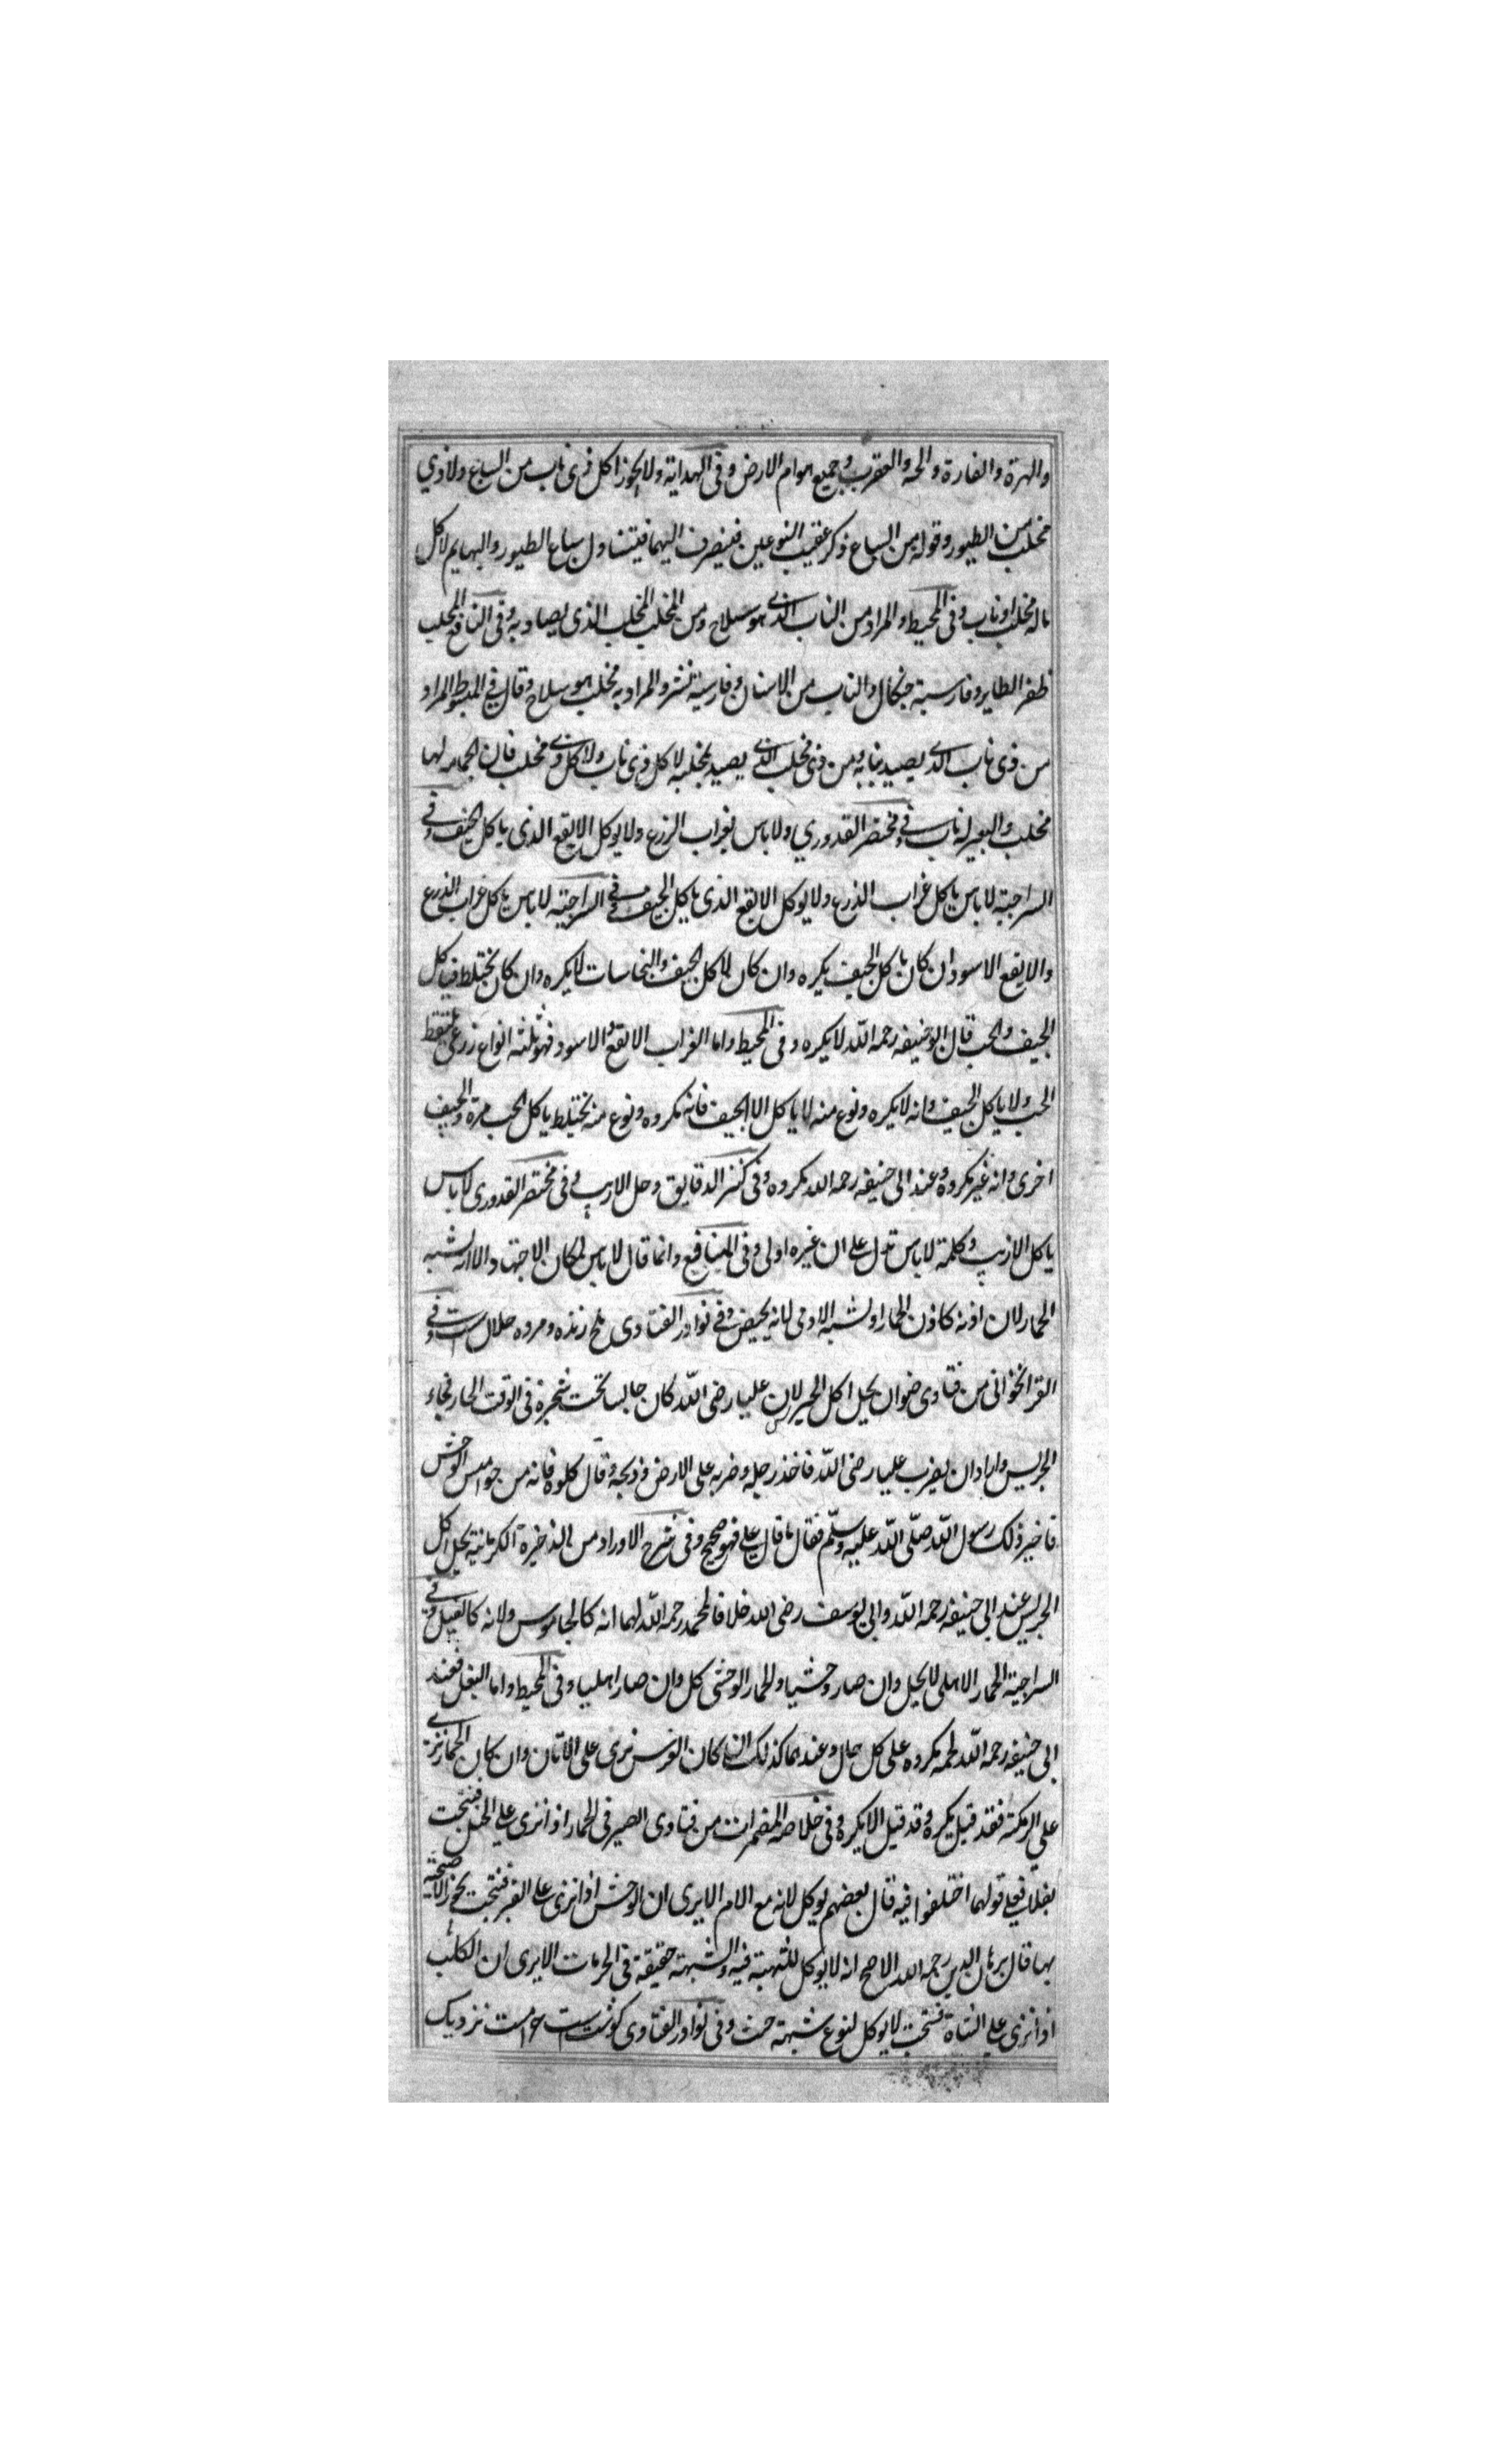 والهرة والفارة والحية والعقرب وجميع هوام الارض وفى الهداية ولا يجوز اكل ذى ناب من السباع ولا ذي
مخلب من الطيور وقوله من السباع ذكر عقيب النوعين فينصرف اليهما فيتناول سباع الطيور والبهايم لا كل
ماله مخلب او ناب وفى المحيط والمراد من الناب الذى هو سلاح ومن المخلب المخلب الذى يصاد به وفى النافع المخلب
ظفر الطاير وفارسيته جنكال والناب من الاسنان وفارسيته نشتر والمراد به مخلب هو سلاح وقال فى المبسوط المراد
من ذى ناب الذى يصيد بنابه ومن ذى مخلب الذى يصيد بمخلبه لا كل ذى ناب ولا كل ذى مخلب فان الحمامة لها
مخلب والبعير له ناب وفى مختصر القدوري ولا باس بغراب الزرع ولا يوكل الابقع الذى ياكل الجيف وفى
السراجية لا باس ياكل غراب الذرع ولا يوكل الابقع الذى ياكل الجيف وفى السراجية لا باس ياكل غراب الذرع
والابقع الاسود ان كان ياكل الجيف يكره وان كان لا ياكل الجيف والنجاسات لا يكره وان كان يختلط فياكل
الجيف والحب قال ابو حنيفه رحمه الله لا يكره وفى المحيط واما الغراب الابقع والاسود فهو ثلثه انواع زرعى يلتقط
الحب ولا ياكل الجيف وانه لا يكره ونوع منه لا ياكل الا الجيف فانه مكروه ونوع منه يختلط ياكل الحب مرة والجيف
اخرى وانه غير مكروه وعند ابى حنيفه رحمه الله مكروه وفى كنز الدقايق وحل الارنب وفى مختصر القدورى لا باس
ياكل الارنب وكلمة لا باس تدل على ان غيره اولى وفى المنافع وانما قال لا باس لمكان الاجتهاد والا انه يشبه
الحمار لان اذنه كاذن الحمار او لشبه الادمى لانه يحيض وفى نوادر الفتاوى ملخ زنده ومرده حلال است وفى
القراخوانى من فتاوى رضوان يحل اكل الحريس لان عليا رضى الله كان جالسا تحت شجرة فى الوقت الحار فجاء
الحريس واراد ان يضرب عليا رضى الله فاخذ رجله وضربه على الارض وذبحه وقال كلوه فانه من جواميس الوحش
فاخبر ذلك رسول الله صلى الله عليه وسلم فقال ما قال على فهو صحيح وفى شرح الاوراد من الذخيرة الكرمانية يحل اكل
الحريس عند ابى حنيفه رحمه الله وابى يوسف رضى الله خلافا لمحمد رحمه الله لهما انه كالجاموس ولانه كالفيل وفى
السراجية الحمار الاهلى لا يحل وان صار وحشيا والحمار الوحشى كل وان صار اهليا وفى المحيط واما البغل فعند
ابى حنيفه رحمه الله لحمه مكروه على كل حال وعندهما كذلك ان كان الفرس نزى على الاتان وان كان الحمار نزى
على الرمكة فقد قيل يكره وقد قيل لا يكره وفى خلاصة المضمرات من فتاوى الصيرفى الحمار اذا نزى على الخيل فنتجت
بغلا فعلى قولهما اختلفوا فيه قال بعضهم يوكل لانه مع الام الا يرى ان الوحش اذا نزى على البقر فنتجت يجوز الاضحية
بها قال برهان الدين رحمه الله الاصح انه لا يوكل للشبهة فيه والشبهة حقيقة فى الحرمات الا يرى ان الكلب
اذا نزى على الشاة فنتجت لا يوكل لنوع شبهة وفى نوادر الفتاوى كوشت نزديك